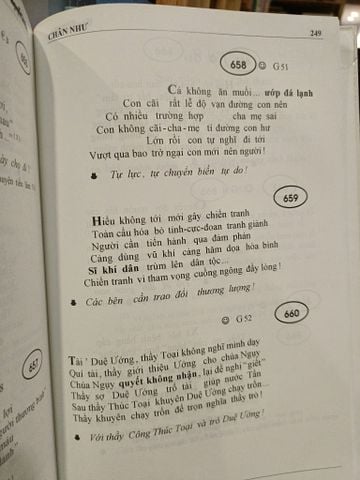 CHÂN NHƯ
249
658 ☺ G51
Cá không ăn muối... ướp đá lạnh
Con cãi rất lễ độ vạn đường con nên
Có nhiều trường hợp cha mẹ sai
Con không cãi-cha-mẹ tỉ đường con hư
Lớn rồi con tự nghĩ đi tới
Vượt qua bao trở ngại con mới nên người!
Tự lực, tự chuyển biến tự do!
659
Hiểu không tới mới gây chiến tranh
Toàn cầu hóa bỏ tính-cực-đoan tranh giành
Người cần tiến hành qua đàm phán
Càng dùng vũ khí càng hăm dọa hòa bình
Sĩ khí dân trùm lên dân tộc...
Chiến tranh vì tham vọng cuồng ngông đấy lòng!
Các bên cần trao đổi thương lượng!
☺ G52 660
Tài ' Duệ Ưởng, thầy Toại không nghĩ mình dạy
Quí tài, thầy giới thiệu Ưởng cho chúa Ngụy
Chúa Ngụy quyết không nhận, lại đề nghị "giết"
Thầy sợ Duệ Ưởng trổ tài giúp nước Tần
Sau thầy Thúc Toại khuyên Duệ Ưởng chạy trốn...
Thầy khuyên chạy trốn để trọn nghĩa thầy trò!
Với thầy Công Thúc Toại và trò Duệ Ưởng!
657